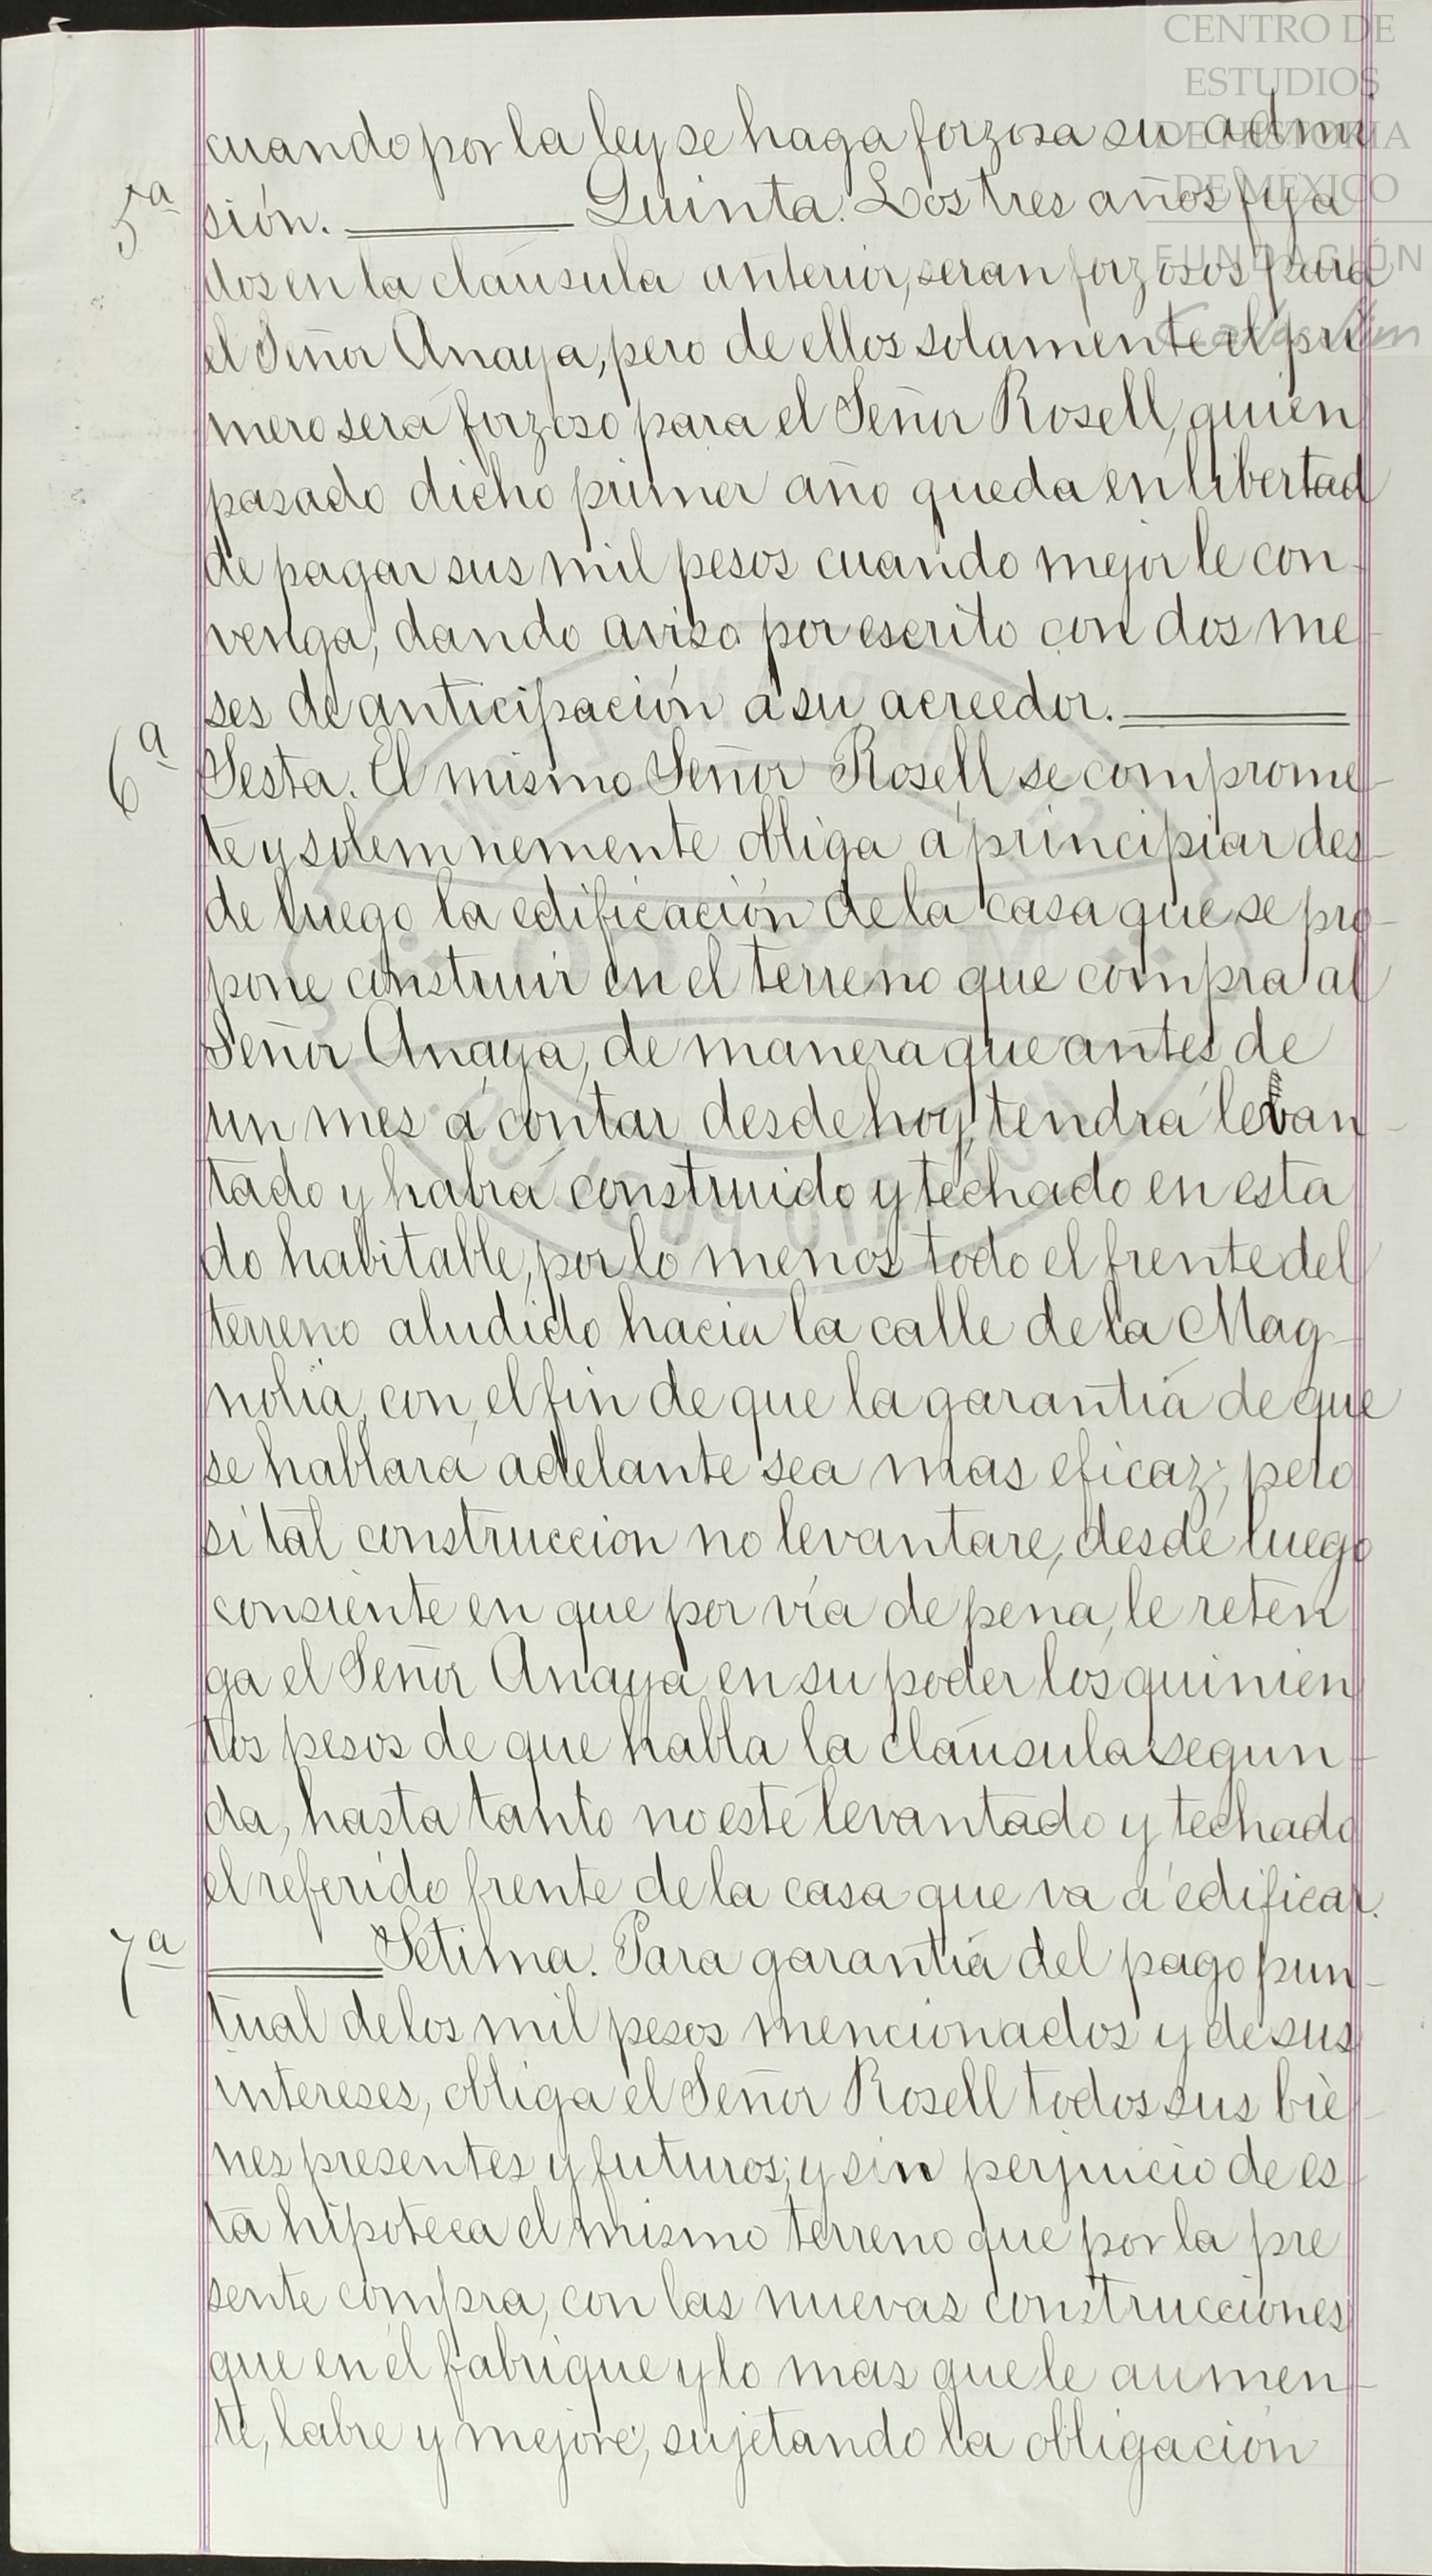 CENTRO DE
ESTUDIOS
DE HISTORIA
DE MÉXICO
FUNDACIÓN
cuando por la ley se haga forzosa su admi
5ª sión. Quinta. Los tres años fija
dos en la claúsula anterior, seran forzosos para
el Señor Anaya, pero de ellos solamente el pri
mero será forzoso para el Señor Rosell, quien
pasado dicho primer año queda en libertad
de pagar sus mil pesos cuando mejor le con-
venga, dando aviso por escrito con dos me-
ses de anticipación á su acreedor.
6ª Sesta. El mismo Señor Rosell se comprome-
te y solemnemente obliga á principiar des-
de luego la edificación de la casa que se pro-
pone construir en el terreno que compra al
Señor Anaya, de manera que antes de
un mes á contar desde hoy, tendrá levan-
tado y habrá construido y techado en esta
do habitable, por lo menos todo el frente del
terreno aludido hacia la calle de la Mag-
nolia, con el fin de que la garantía de que
se hablará adelante sea mas eficaz; pero
si tal construccion no levantare, desde luego
consiente en que por vía de pena, le reten
ga el Señor Anaya en su poder los quinien
tos pesos de que habla la claúsula segun-
da, hasta tanto no esté levantado y techado
el referido frente de la casa que va á edificar.
7ª Setima. Para garantía del pago pun-
tual de los mil pesos mencionados y de sus
intereses, obliga el Señor Rosell todos sus bie-
nes presentes y futuros; y sin perjuicio de es-
ta hipoteca el mismo terreno que por la pre
sente compra, con las nuevas construcciones
que en él fabrique y lo mas que le aumen-
te, labre y mejore, sujetando la obligación